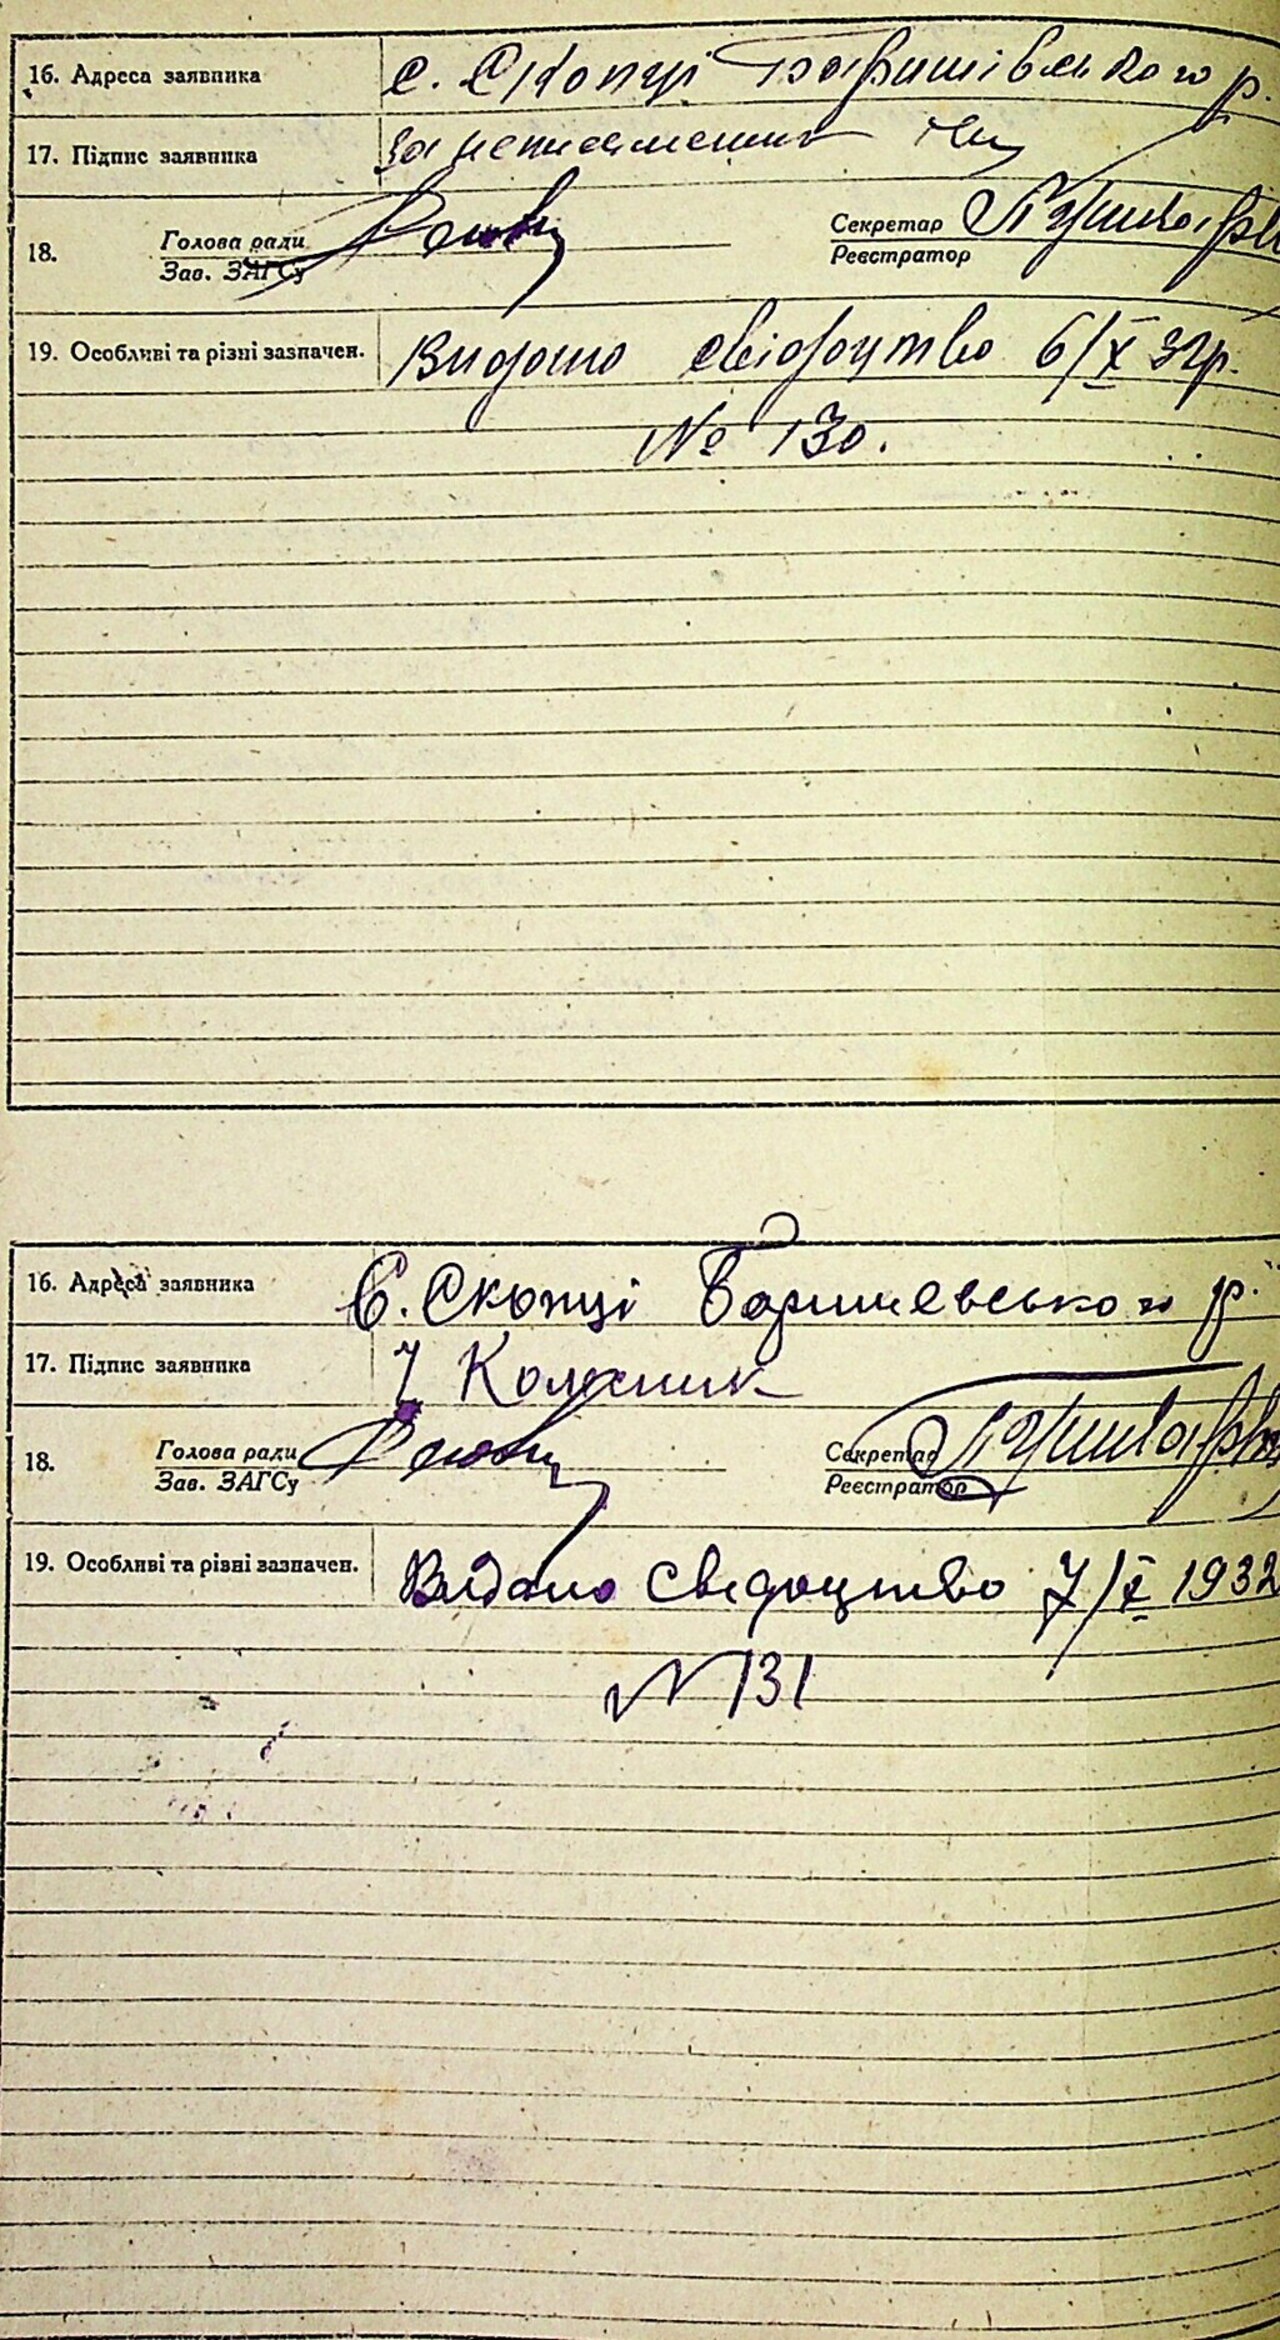 16. Адреса заявника с. Скопці Баришівського р.
17. Підпис заявника за неписьменних
18. Голова ради Секретар
Зав. ЗАГСу Реєстратор
19. Особливі та різні зазначен. Видано свідоцтво 6/X 32р.
№ 130.
16. Адреса заявника С. Скопці Баришевського р.
17. Підпис заявника Колесник
18. Голова ради Секретар
Зав. ЗАГСу Реєстратор
19. Особливі та різні зазначен. Видано свідоцтво 7/X 1932
N 131